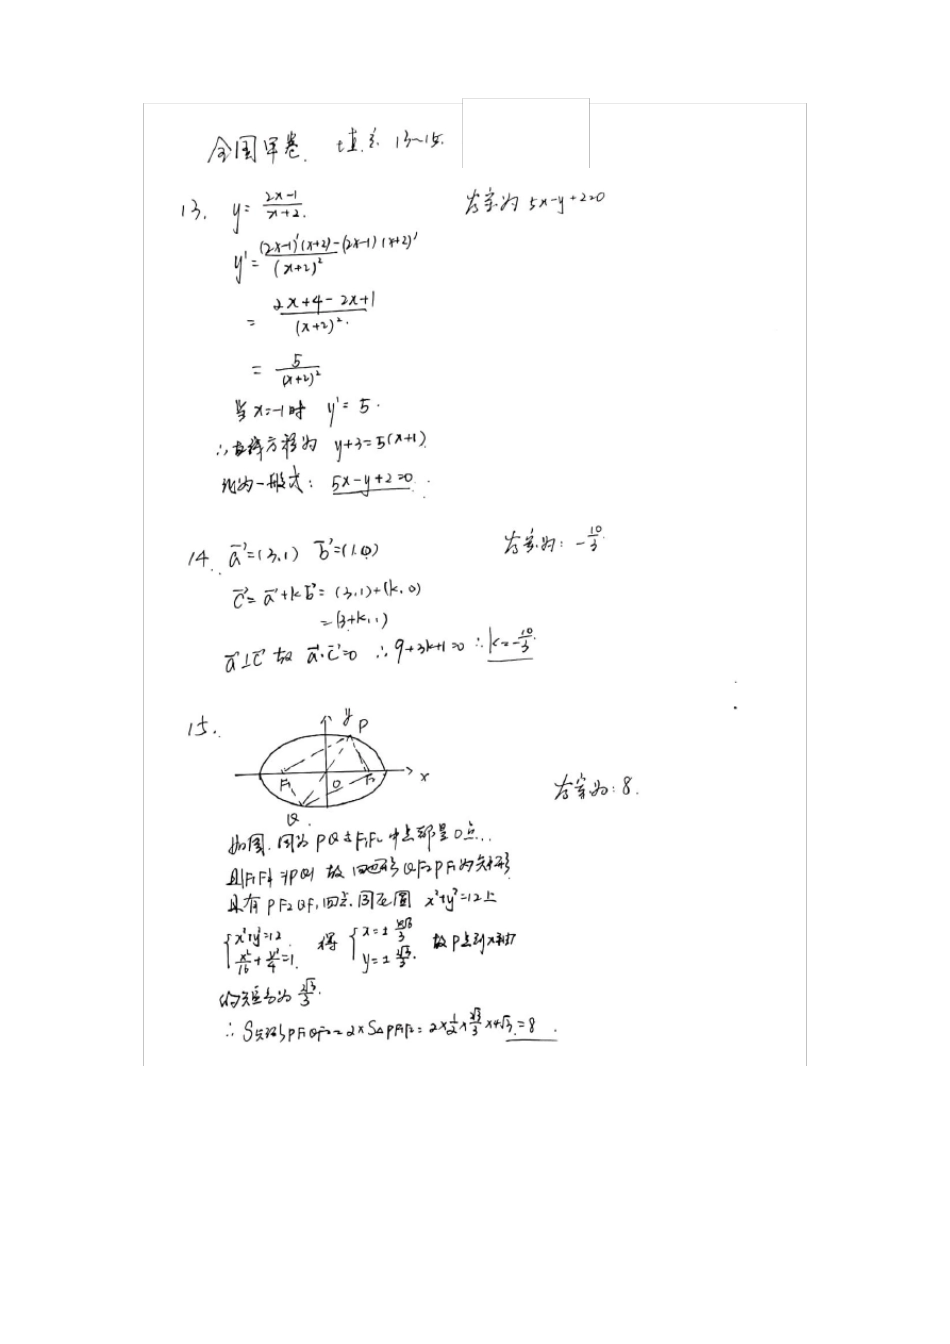 全国甲卷. 填空 13~15.
13. y = (2x-1)/(x+2). 答案为 5x-y+2=0
y' = ((2x-1)'(x+2)-(2x-1)(x+2)')/(x+2)²
= (2x+4-2x+1)/(x+2)².
= 5/(x+2)²
当 x=-1时 y'=5.
∴直线方程为 y+3=5(x+1).
化为一般式: 5x-y+2=0.
14. a⃗=(3,1) b⃗=(1,0) 答案为: -10/3.
c⃗=a⃗+kb⃗=(3,1)+(k,0)
=(3+k,1)
a⃗⊥c⃗ 故 a⃗·c⃗=0 ∴9+3k+1=0 ∴k=-10/3.
15.
y P
F₁ O F₂ x
Q
答案为: 8.
如图.因为PQ与F₁F₂中点都是O点.
且|F₁F₂|=|PQ| 故四边形QF₂PF₁为矩形
且有PF₂QF₁四点.同在圆 x²+y²=12上
{x²+y²=12 x²/16+y²/4=1. 得 {x=± y=± 故P点到x轴
的距离为 2√3/3.
∴S矩形PF₁QF₂=2×S△PF₁F₂=2×1/2×2√3/3×4√3=8.